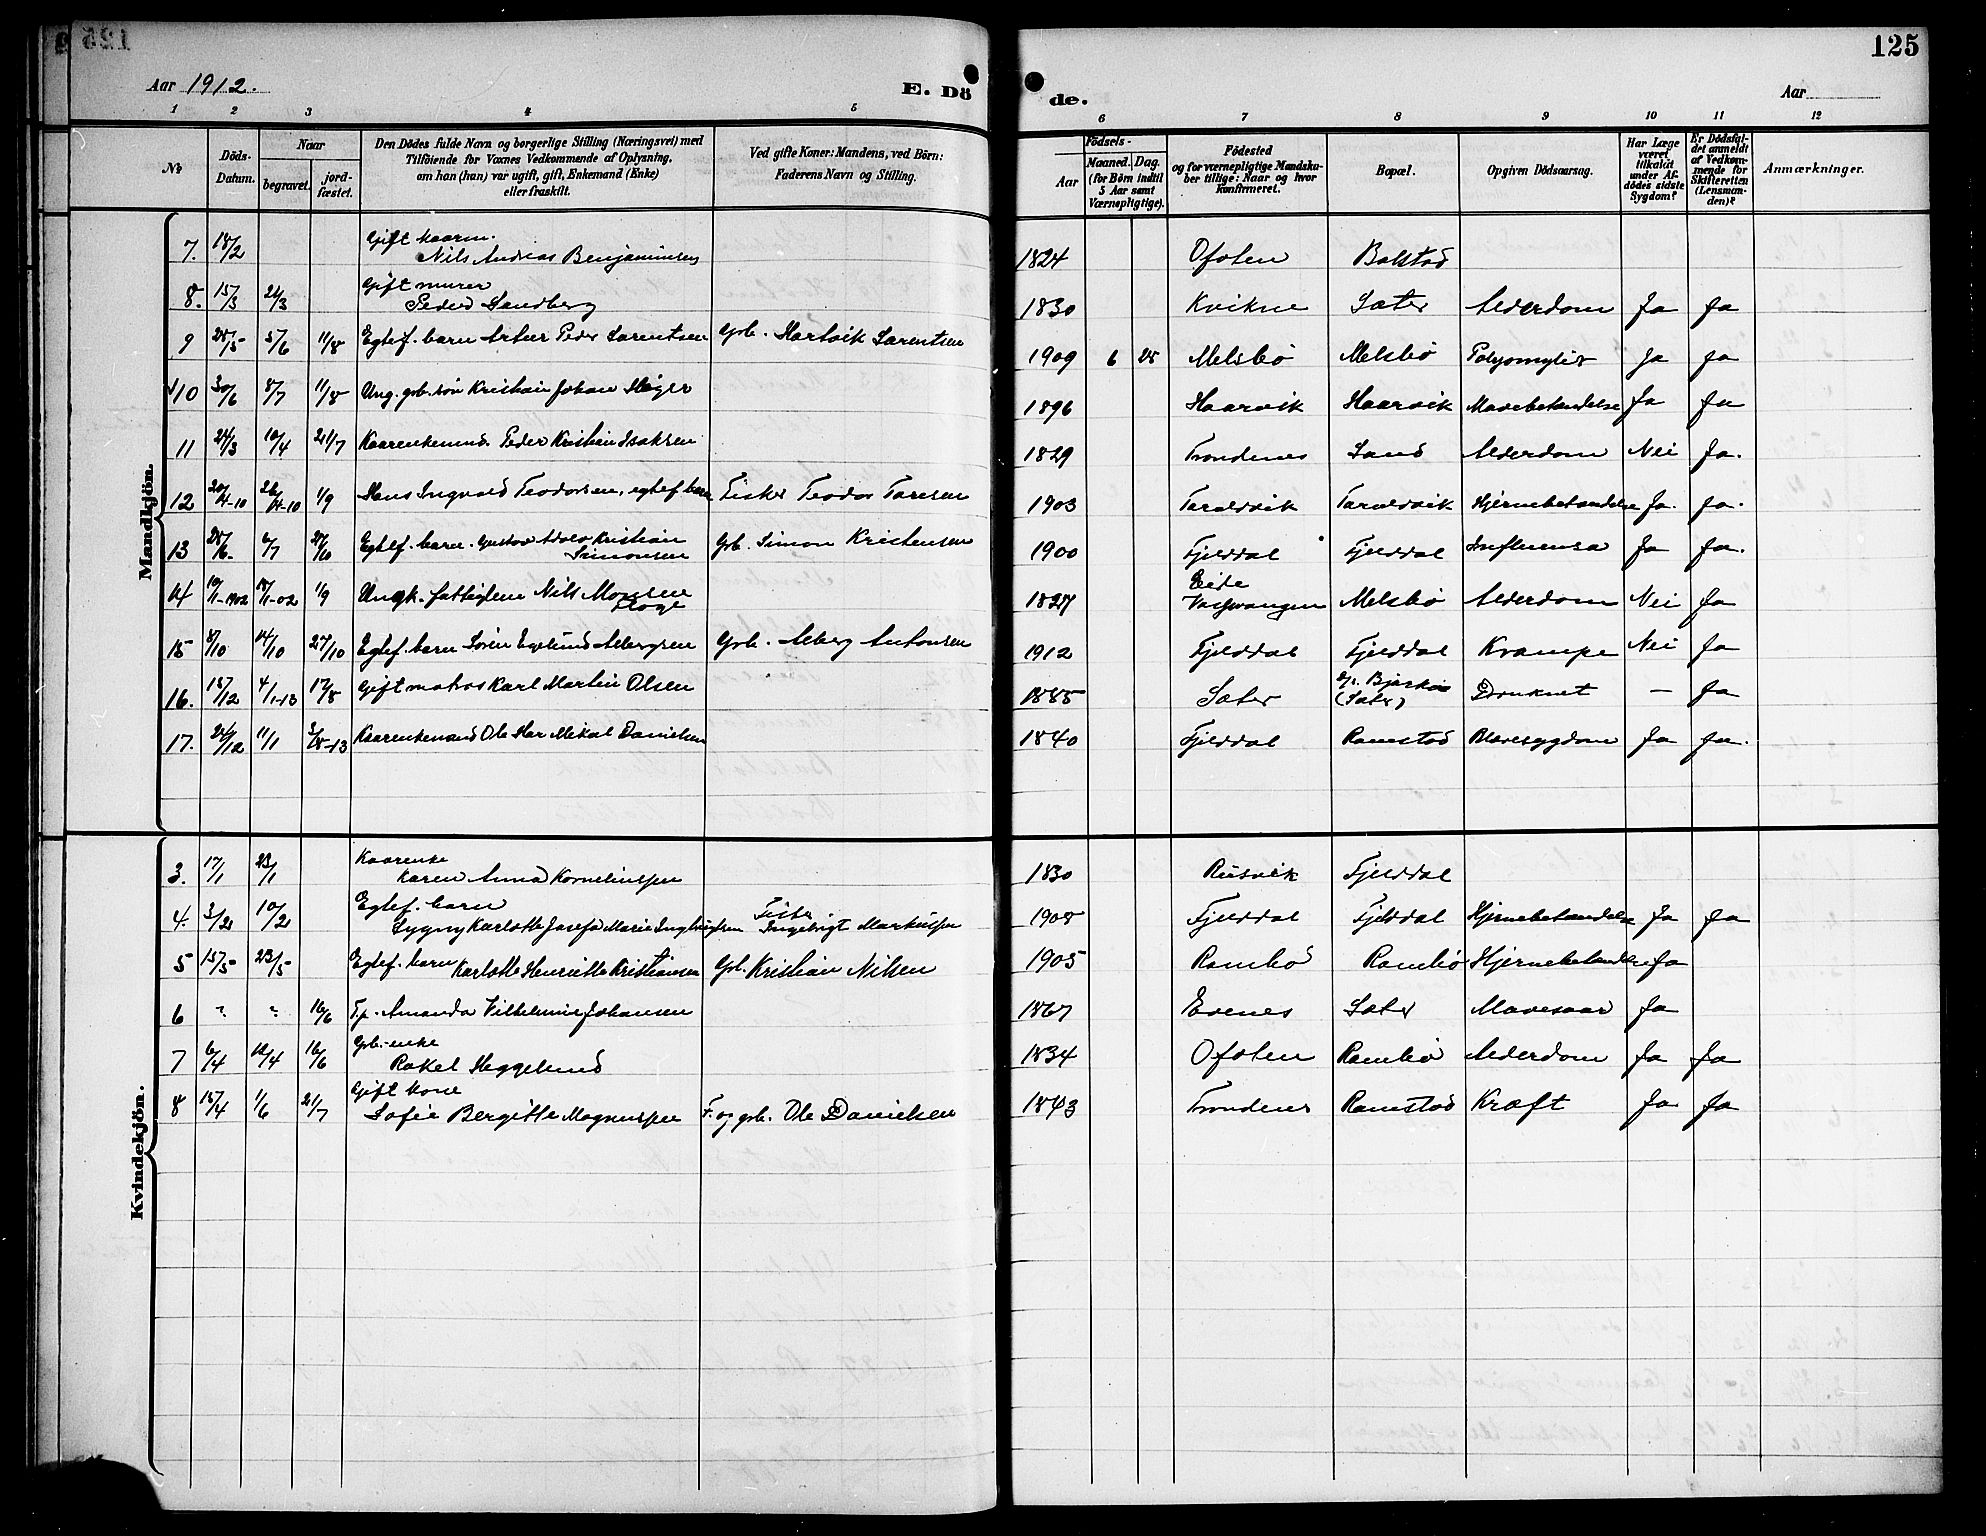 125
Aar 1912.
E. Dö
de.
Aar
1 2 3 4 5 6 7 8 9 10 11 12
No
Döds-Datum.
Naar
begravet.
jord-fæstet.
Den Dödes fulde Navn og borgerlige Stilling (Næringsvei) med
Tilföiende for Voxnes Vedkommende af Oplysning,
om han (hun) var ugift, gift, Enkemand (Enke)
eller fraskilt.
Ved gifte Koner: Mandens, ved Börn:
Faderens Navn og Stilling.
Födsels-
Aar
Maaned. Dag.
(for Börn indtil
5 Aar samt
Værnepligtige).
Födested
og for værnepligtige Mandska-
ber tillige: Naar og hvor
konfirmeret.
Bopæl.
Opgiven Dödsaarsag.
Har Læge
været
tilkaldt
under Af-
dödes sidste
Sygdom?
Er Dödsfal-
det anmeldt
af Vedkom-
mende for
Skifteretten
(Lensman-
den)?
Anmærkninger.
Mandkjön.
7. 18/2 Gift kaarm. Nils Andreas Benjaminsen 1824 Ofoten Bolstad
8. 15/3 21/3 Gift murer Peder Sandberg 1830 Kvikne Sæter Alderdom Ja Ja
9 28/5 5/6 11/8 Egtef. barn Artur Peder Larentsen Grb. Hartvik Larentsen 1909 6 25 Melsbö Melsbö Ja Ja
10 30/6 8/7 11/8 Ung. grb. sön Kristian Johan 1896 Haarvik Haarvik Mavebetændelse Ja Ja
11 24/3 10/4 21/7 Kaarenkemd. Peder Kristian Isaksen 1829 Trondenes Sand Alderdom Nei Ja.
12 20/4-10 26/4-10 1/9 Hans Ingvald Teodorsen, egtef. barn Fisker Teodor Toresen 1903 Taraldvik Taraldvik Hjernebetændelse Ja. Ja.
13 28/6. 6/7 27/10 Egtef. barn. Gustav Adolo Kristian Simonsen Grb. Simon Kristensen 1900 Fjelddal Fjelddal Influensa Ja Ja.
14 10/1-1902 18/1-02 1/9 Ungk. fattiglem Nils Monsen 1827 Melsbö Alderdom Nei Ja
15 8/10 14/10 27/10 Egtef. barn Sören Egelund Albergsen Grb. Alberg Antonsen 1912 Fjelddal Fjelddal Krampe Nei Ja
16. 15/12 4/1-13 17/8 Gift matros Karl Martin Olsen 1885 Sæter Gr. Bjarkö (Sæter) Druknet — Ja
17. 26/12 11/1 3/8-13 Kaarenkemand Ole Mikal Danielsen 1840 Fjelddal Ramstad Blæresygdom Ja Ja.
Kvindekjön.
3. 17/1 23/1 Kaarenke Karen Anna Korneliusen 1830 Fjelddal
4. 3/2 10/2 Egtef. barn Sygny Karlotte Josefa Marie Ingbrigtsen Fisker Ingebrigt Markusen 1908 Fjelddal Fjelddal Hjernebetændelse Ja Ja
5 15/5 23/5 Egtef. barn Karlotte Henriette Kristiansen Grb. Kristian Nilsen 1905 Rambö Rambö Hjernebetændelse Ja
6 " " 16/6 Amanda Vilhelmine Johansen 1867 Evenes Sæter Mavesaar Ja
7 6/4 12/4 16/6 Grb.-enke Rakel Heggelund 1834 Ofoten Rambö Alderdom Ja Ja
8 15/4 1/6 21/7 Gift kone Sofie Bergitte Magnusen F. og grb. Ole Danielsen 1843 Trondenes Ramstad Kræft Ja Ja